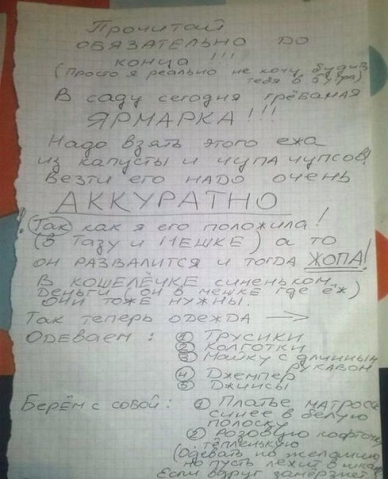 Прочитай
ОБЯЗАТЕЛЬНО ДО
КОНЦА !!!
(Просто я реально не хочу будить
тебя в 5 утра)
В саду сегодня грёбаная
ЯРМАРКА!!!
Надо взять этого ежа
из капусты и чупа чупсов!
Везти его НАДО очень
АККУРАТНО
!! (Так) как я его положила!
(В тазу и МЕШКЕ) а то
он РАЗВАЛИТСЯ и тогда ЖОПА!
В КОШЕЛЁЧКЕ синеньком
деньги (он в мешке где ёж)
ОНИ ТОЖЕ НУЖНЫ.
Так теперь ОДЕЖДА →
ОДЕВАЕМ : ① Трусики
② Колготки
③ Майку с длинным
рукавом
④ Джемпер
⑤ Джинсы
Берём с собой: ① Платье матроса
синее в белую
полоску
② Розовую кофточку
тёпленькую
(Одевать по желанию
но пусть лежит в шкафу
Если вдруг замёрзнет)